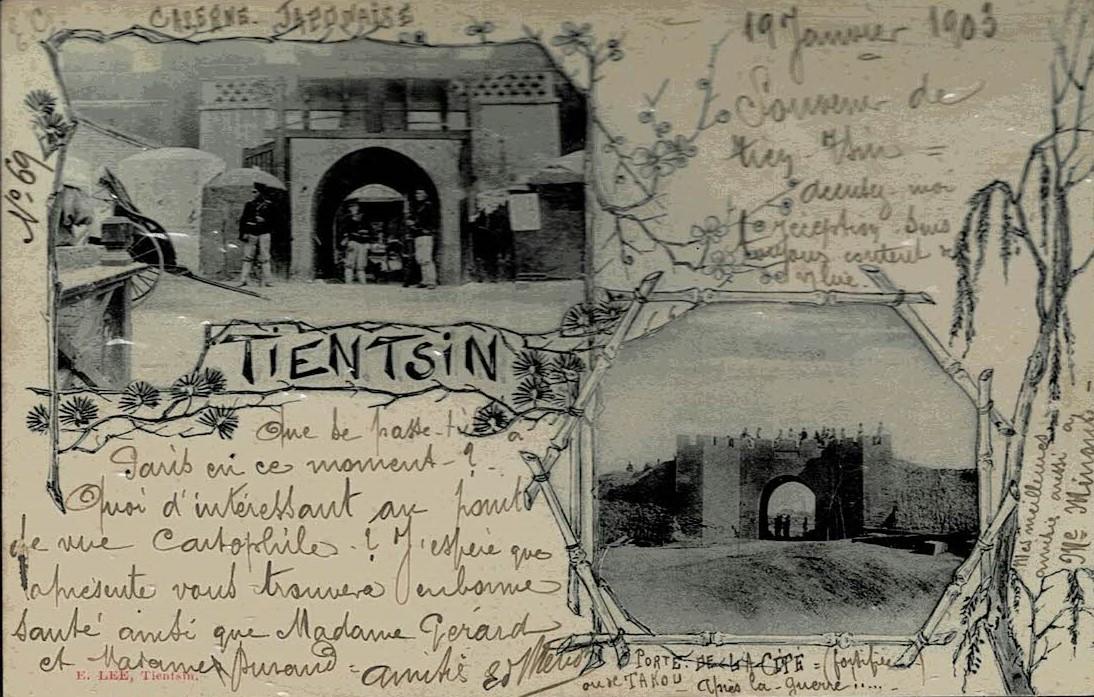 CASERNE JAPONAISE
19 Janvier 1903
Souvenir de
Tien-Tsin =
accusez-moi
réception suis
toujours content
No. 69
TIENTSIN
Que se passe-t-il à
Paris en ce moment - ?
Quoi d'intéressant au point
de vue Cartophile - ? J'espère que
la présente vous trouvera en bonne
santé ainsi que Madame Gérard
et Madame Durand = amitiés
E. LEE, Tientsin.
PORTE DE LA CÔTE = (fortifiée)
ou de TAKOU - après la guerre .....
Mes meilleures
amitiés aussi à